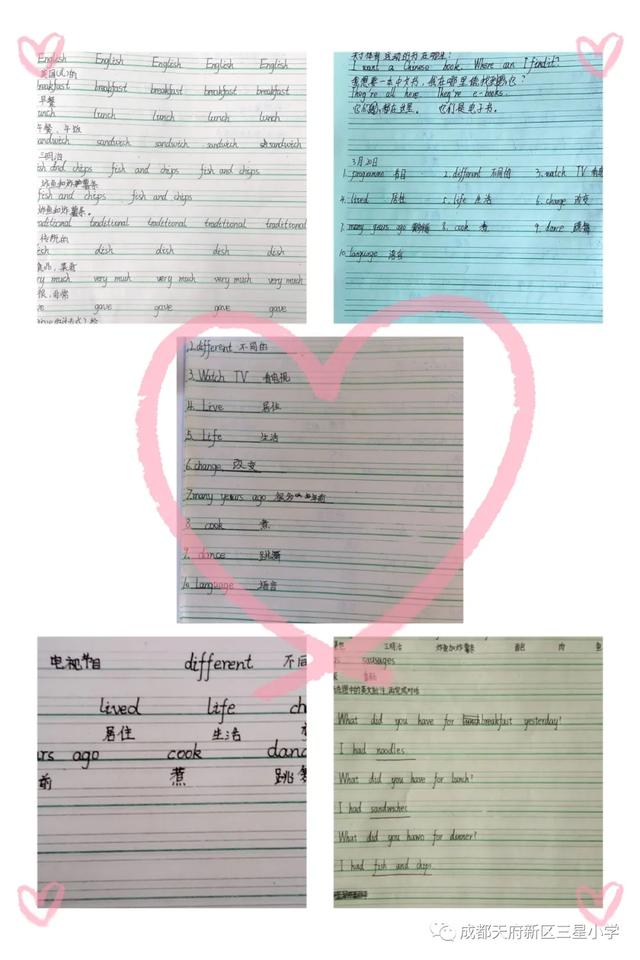 English English English English English
英国(人)的
breakfast breakfast breakfast breakfast breakfast
早餐
lunch lunch lunch lunch lunch
午餐、午饭
sandwich sandwich sandwich sandwich sandwich
三明治
fish and chips fish and chips fish and chips
炸鱼和炸薯条
fish and chips fish and chips
炸鱼和炸薯条。
traditional traditional traditional traditional traditional
传统的
dish dish dish dish dish
食品、菜肴
very much very much very much very much very much
很,非常
gave gave gave gave
I want a Chinese book. Where can I find it?
我想要一本中文书,我在哪里能找到它?
They're all here. They're e-books.
它们都在这里。 它们是电子书。
3月20日
1. programme 节目 2. different 不同的 3. watch TV 看
4. lived 居住 5. life 生活 6. change 改变
7. many years ago 8. cook 煮 9. dance 跳舞
10. language 语言
2. different 不同的
3. Watch TV 看电视
4. Live 居住
5. Life 生活
6. change 改变
7. many years ago 很多年前
8. cook 煮
9. dance 跳舞
10. language 语言
电视节目 different 不同
lived life ch
居住 生活
rs ago cook danc
前 煮 跳舞
三明治 炸鱼加炸薯条 面包 肉 鱼
sausages
What did you have for breakfast yesterday?
I had noodles.
What did you have for lunch?
I had sandwiches
What did you have for dinner?
I had fish and chips
成都天府新区三星小学